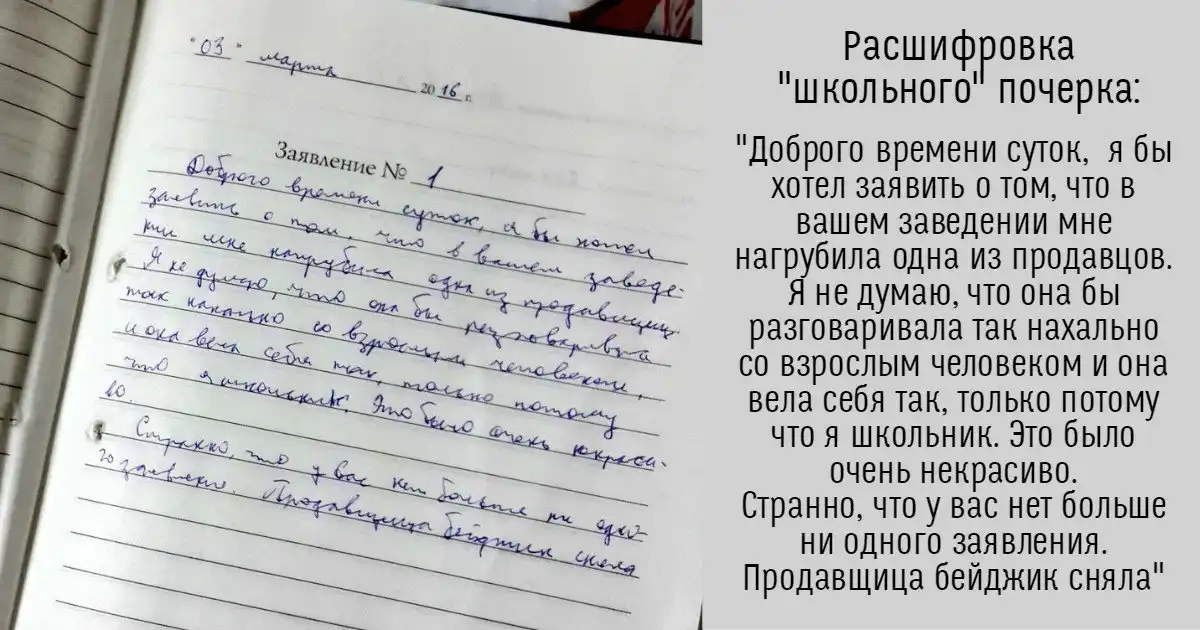 "03" марта 2016 г.
Заявление № 1
Доброго времени суток, я бы хотел
заявить о том, что в вашем заведе-
нии мне нагрубила одна из продавщиц.
Я не думаю, что она бы разговаривала
так нахально со взрослым человеком,
и она вела себя так, только потому
что я школьник. Это было очень некраси-
во.
Странно, что у вас нет больше ни одно-
го заявления. Продавщица бейджик сняла
Расшифровка
"школьного" почерка:
"Доброго времени суток, я бы
хотел заявить о том, что в
вашем заведении мне
нагрубила одна из продавцов.
Я не думаю, что она бы
разговаривала так нахально
со взрослым человеком и она
вела себя так, только потому
что я школьник. Это было
очень некрасиво.
Странно, что у вас нет больше
ни одного заявления.
Продавщица бейджик сняла"